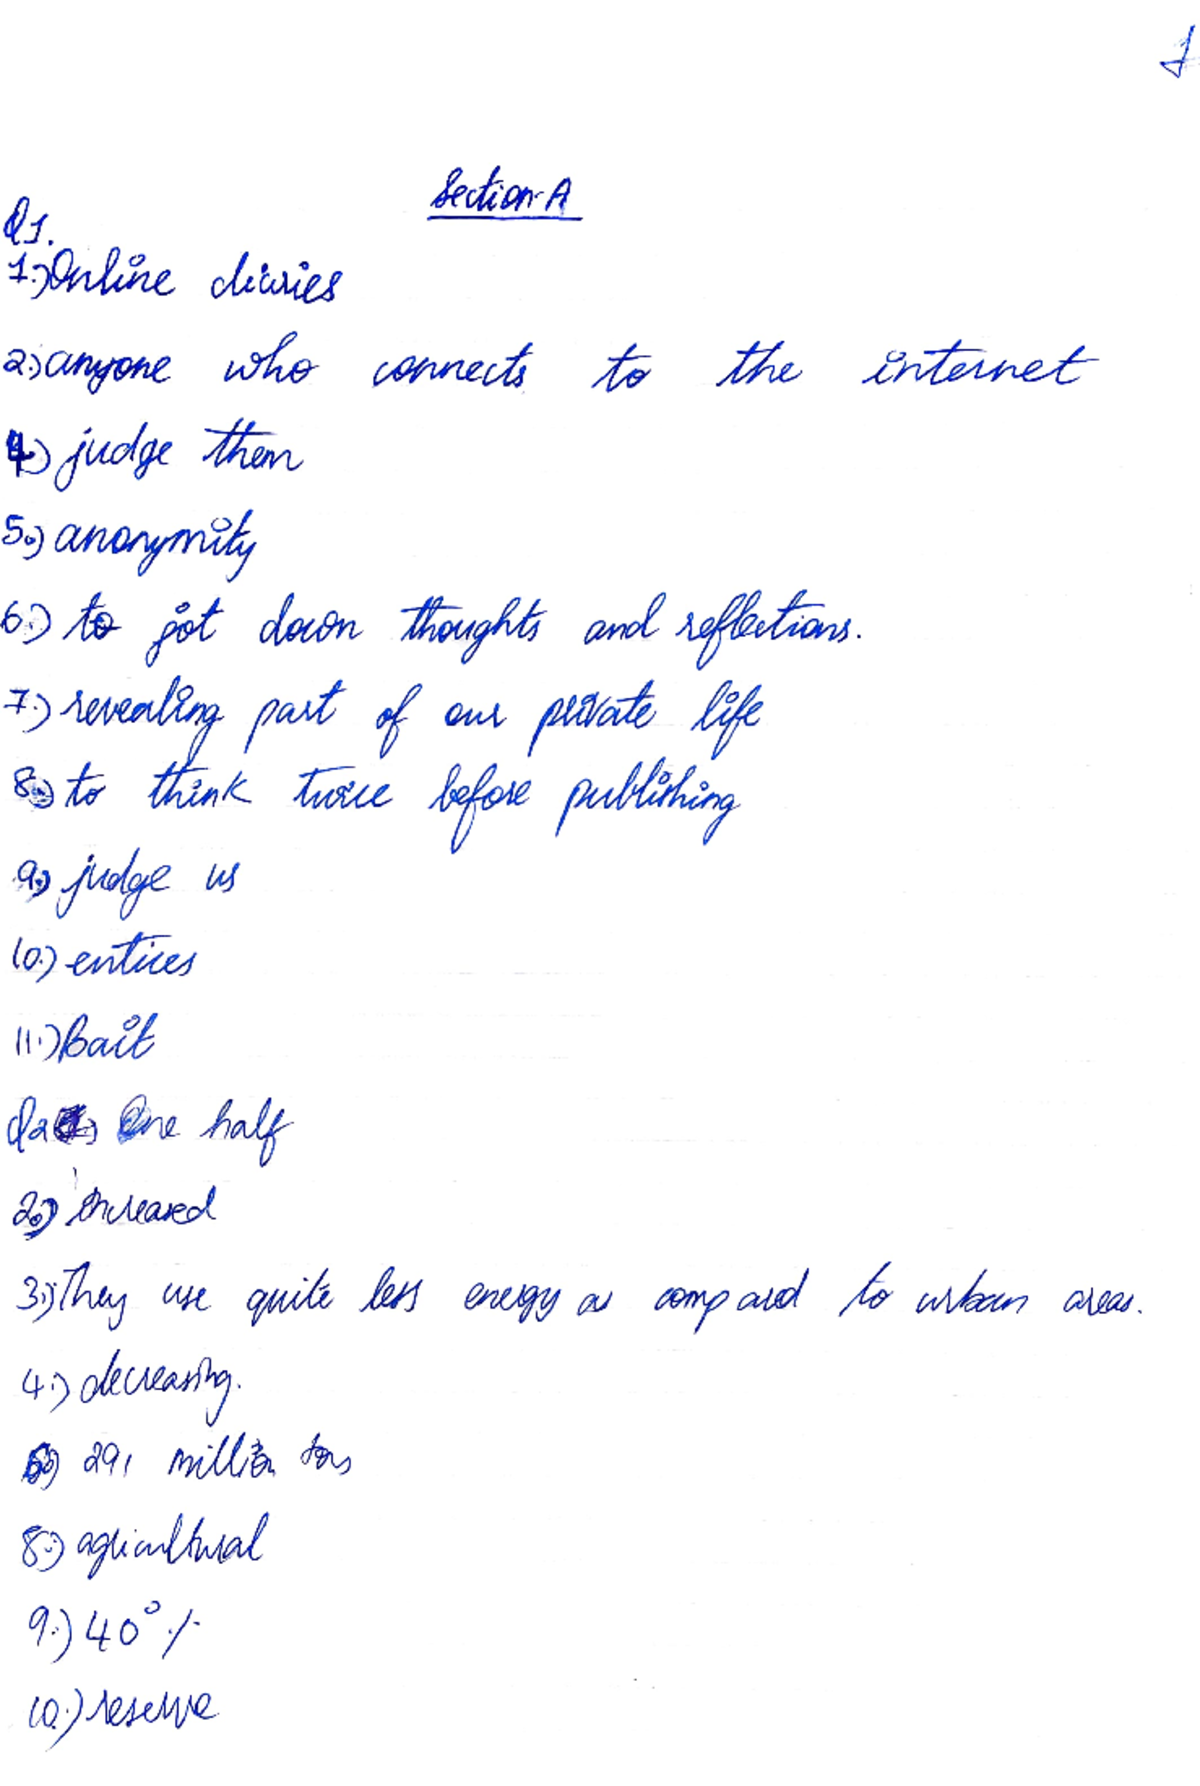 1
Section-A
Q1.
1.) Online diaries
2.) anyone who connects to the internet
4.) judge them
5.) anonymity
6.) to jot down thoughts and reflections.
7.) revealing part of our private life
8.) to think twice before publishing
9.) judge us
10.) entices
11.) Bait
Q2 1.) One half
2.) increased
3.) They use quite less energy as compared to urban areas.
4.) decreasing.
6.) 291 million tons
8.) agricultural
9.) 40%
10.) reserve